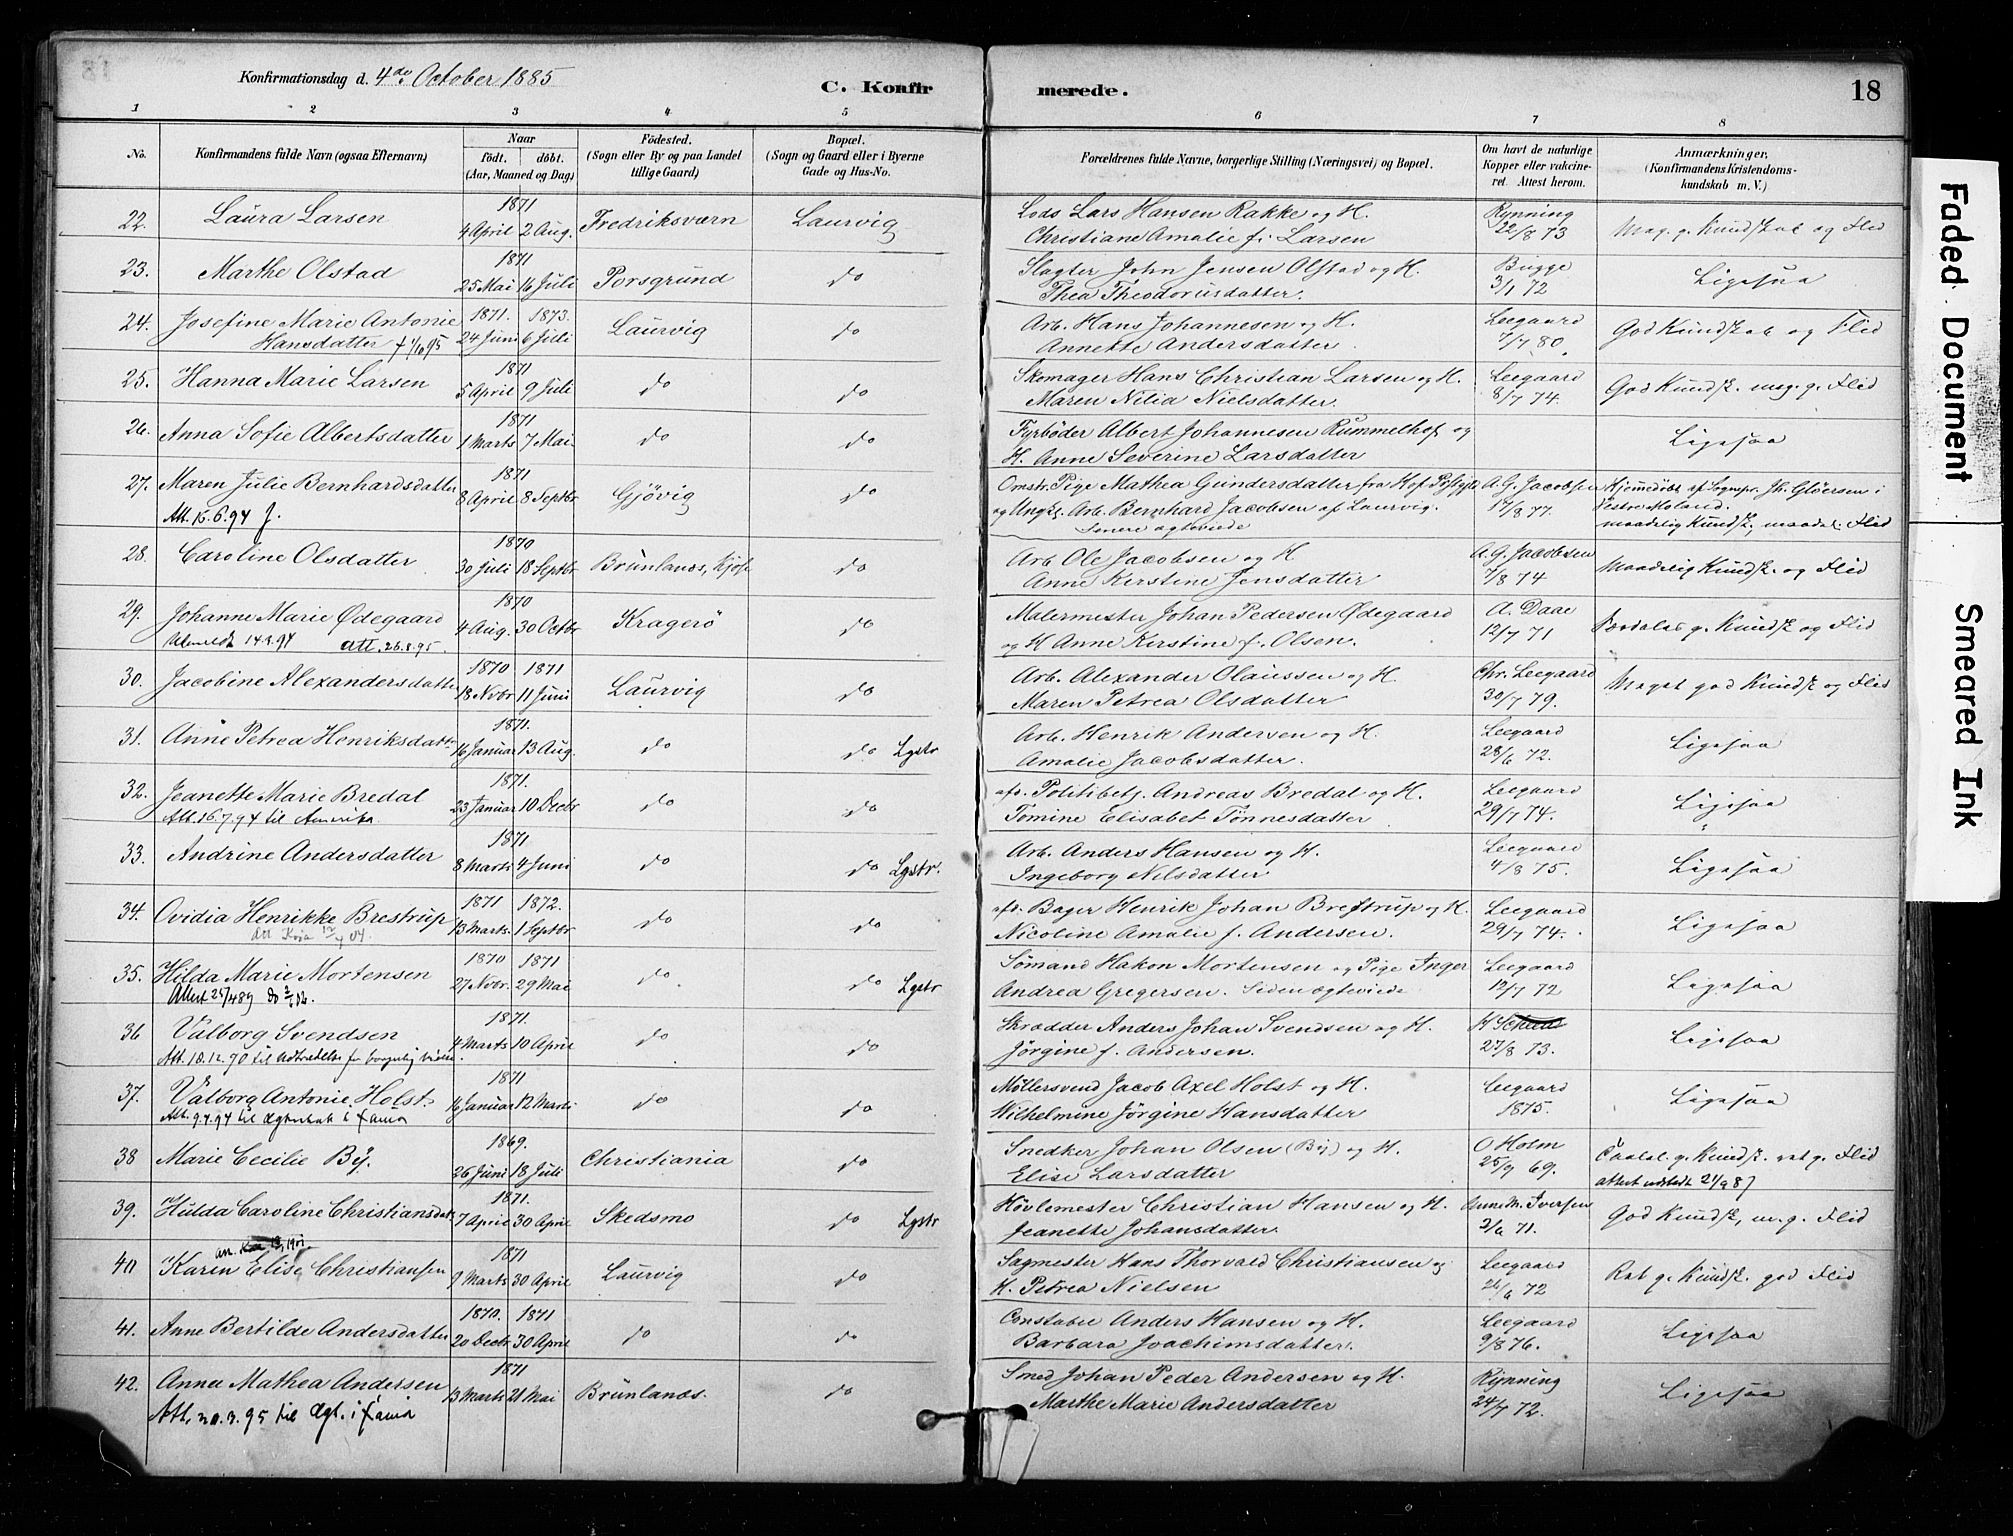 Konfirmationsdag d. 4de October 1885
C. Konfirmerede.
18
1 2 3 4 5 6 7 8
No.
Konfirmandens fulde Navn (ogsaa Efternavn)
Naar
födt. döbt.
(Aar, Maaned og Dag)
Födested.
(Sogn eller By og paa Landet
tillige Gaard)
Bopæl.
(Sogn og Gaard eller i Byerne
Gade og Hus-No.
Forældrenes fulde Navne, borgerlige Stilling (Næringsvei) og Bopæl.
Om havt de naturlige
Kopper eller vakcine-
ret. Attest herom.
Anmærkninger,
(Konfirmandens Kristendoms-
kundskab m. V.)
22. Laura Larsen 1871 4 April 2 Aug. Fredriksværn Laurvig Lods Lars Hansen Rakke og H. Rynning
Christiane Amalie f. Larsen 22/8 73 Meg. g. Kundsk og Flid
23. Marthe Olstad 1871 25 Mai 16 Juli Porsgrund do Slagter John Jensen Olstad og H. Bugge
Thea Theodorusdatter. 3/1 72 Ligesaa
24. Josefine Marie Antonie 1871. 1873. Laurvig do Arb. Hans Johannesen og H. Leegaard
Hansdatter 24 Juni 6 Juli Annette Andersdatter 7/7 80 God Kundskab og Flid
25. Hanna Marie Larsen 1871 5 April 9 Juli do do Skomager Hans Christian Larsen og H. Leegaard
Maren Nilia Nielsdatter. 8/7 74. God Kundsk. meg. g. Flid
26. Anna Sofie Albertsdatter 1871 1 Marts 7 Mai do do Fyrböder Albert Johannesen Rummelhof og
H. Anne Severine Larsdatter Ligesaa
27. Maren Julie Bernhardsdatter 1871 8 April 8 Septbr Gjövig do Omstr. Pige Mathea Gundersdatter fra Hof A. G. Jacobsen Hjemmedöbt af Sognepr. Jh. Glöersen i
Att. 15.6.94 og Ungk. Arb. Bernhard Jacobsen af Laurvig. 17/8 77. Vestre Moland.
Senere ægteviede maadelig Kundsk, maadel. Flid
28. Caroline Olsdatter 1870 30 Juli 18 Septbr Brunlanæs, Kjose do Arb Ole Jacobsen og H A. G. Jacobsen
Anne Kirstine Jensdatter 7/8 74 Maadelig Kundsk. og Flid
29. Johanne Marie Ødegaard 1870 4 Aug. 30 Octbr Kragerö do Malermester Johan Pedersen Ødegaard A. Daae
Att. 26.8.95. og H Anne Kirstine f. Olsen. 12/7 71 g. Kundsk og Flid
30. Jacobine Alexandersdatter 1870 1871 18 Nvbr 11 Juni Laurvig do Arb. Alexander Olaussen og H. Chr. Leegaard
Maren Petrea Olsdatter 30/7 79. Meget god Kundsk og Flid
31. Anne Petrea Henriksdatt. 1871. 16 Januar 13 Aug. do do Lgstr Arb. Henrik Andersen og H. Leegaard
Amalie Jacobsdatter. 28/6 72. Ligesaa
32. Jeanette Marie Bredal 1871. 23 Januar 10 Decbr do do afd. Politibetj. Andreas Bredal og H. Leegaard
Att. 16.7.94 til Amerika. Tomine Elisabet Tönnesdatter 29/7 74. Ligesaa
33. Andrine Andersdatter 1871 8 Marts 4 Juni do do Lgstr. Arb. Anders Hansen og H. Leegaard
Ingeborg Nilsdatter 4/8 75. Ligesaa
34. Ovidia Henrikke Brestrup 1871 1872. 13 Marts. 1 Septbr do do afd. Bager Henrik Johan Brestrup og H. Leegaard
Nicoline Amalie f. Andersen. 29/7 74. Ligesaa
35. Hilda Marie Mortensen 1870 1871 27 Novbr. 29 Mai do do Lgstr Sömand Hakon Mortensen og Pige Inger Leegaard
Attest 25/4 89 Andrea Gregersen. Siden ægteviede 12/7 72 Ligesaa
36 Valborg Svendsen 1871. 4 Marts 10 April do do Skrædder Anders Johan Svendsen og H.
Jörgine f. Andersen. 27/8 73. Ligesaa
37. Valborg Antonie Holst. 1871 16 Januar 12 Marts do do Møllersvend Jacob Axel Holst og H. Leegaard
Wilhelmine Jörgine Hansdatter 1875. Ligesaa
38 Marie Cecilie By. 1869. 26 Juni 18 Juli Christiania do Snedker Johan Olsen (By) og H. O Holm
Elise Larsdatter 25/9 69. g. Kundsk. g. Flid
39. Hulda Caroline Christiansdatt. 1871. 7 April 30 April Skedsmo do Lgstr Hövlemester Christian Hansen og H. Anne M. Iversen
Jeanette Johansdatter. 2/6 71. God Kundsk, m. g. Flid
40 Karen Elise Christiansen 1871 9 Marts 30 April Laurvig do Sagmester Hans Thorvald Christiansen og Leegaard
H. Petrea Nielsen 26/6 72 god Flid
41. Anne Bertilde Andersdatter 1870. 1871 20 Decbr. 30 April do do Constabel Anders Hansen og H. Leegaard
Barbara Joachimsdatter. 9/8 76. Ligesaa
42. Anna Mathea Andersen 1871 13 Marts 21 Mai Brunlanæs. do Smed Johan Peder Andersen og H. Rynning
Marthe Marie Andersdatter 24/7 72. Ligesaa
Faded Document
Smeared Ink